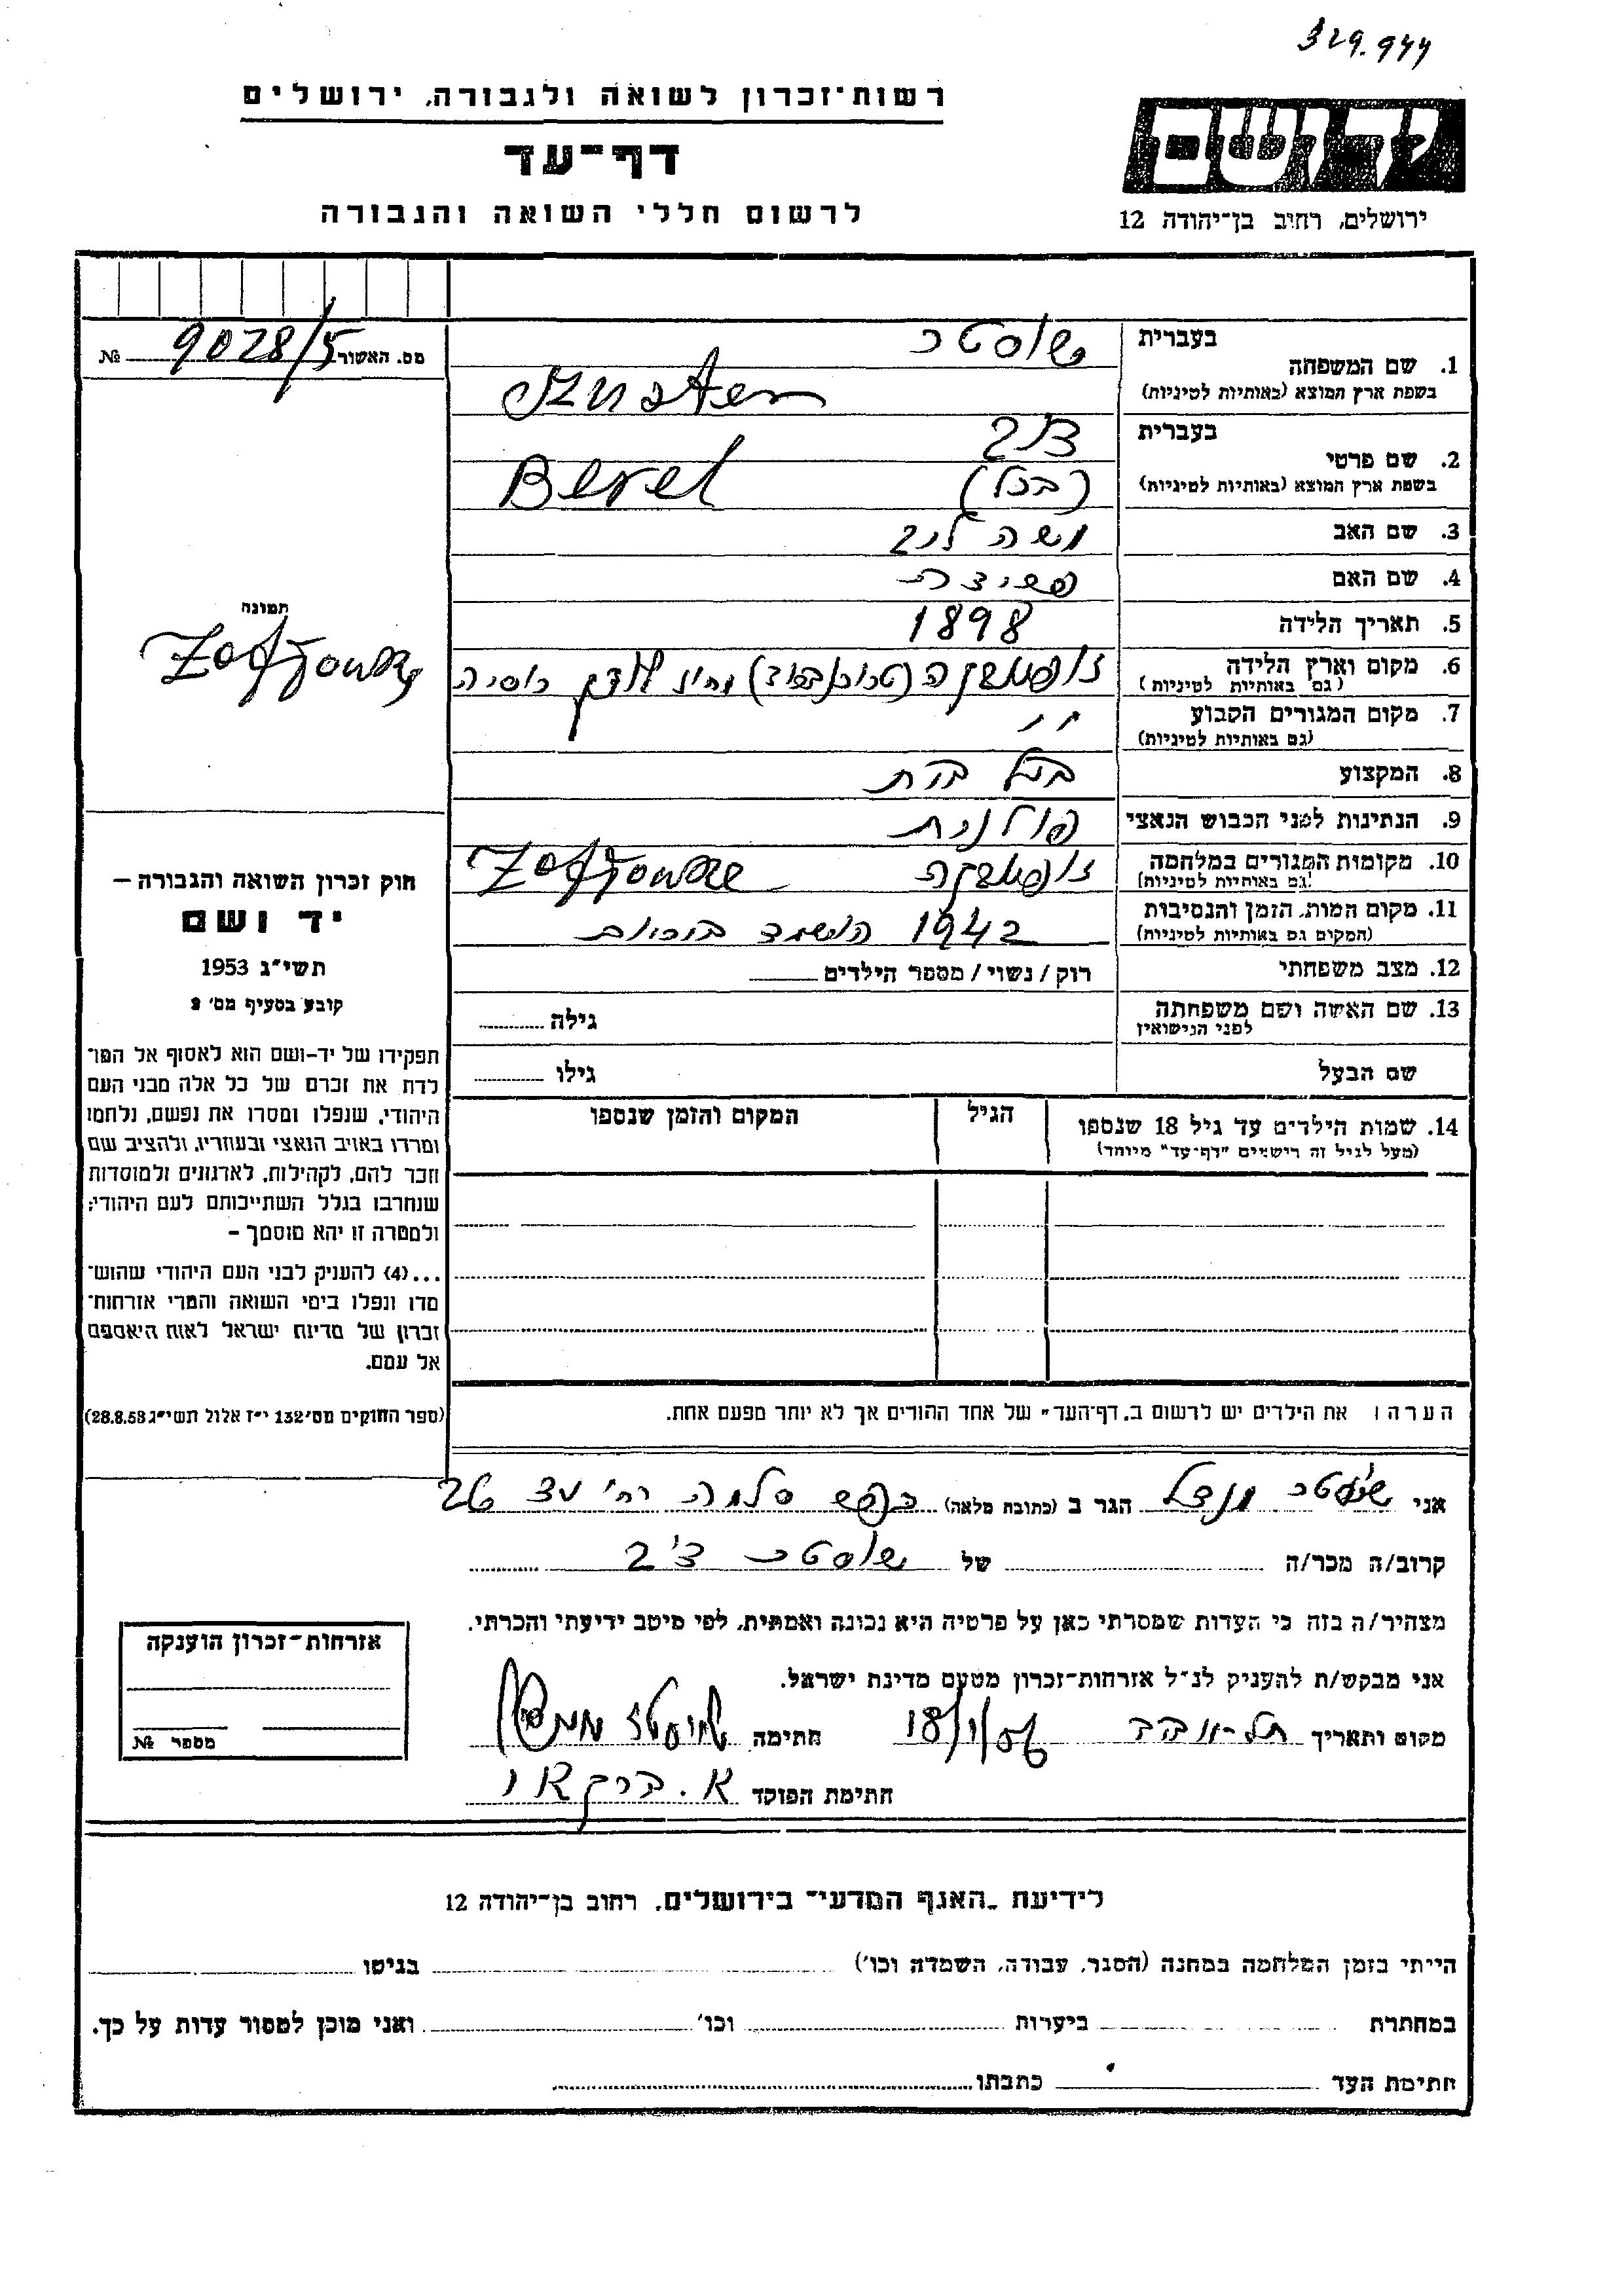 329.944
רשות־זכרון לשואה ולגבורה, ירושלים
דף־עד
לרשום חללי השואה והגבורה
יד ושם
ירושלים, רחוב בן־יהודה 12
מס. האשור 9028/5 №
1. שם המשפחה
בעברית שוסטר
בשפת ארץ המוצא (באותיות לטיניות) Szuster
2. שם פרטי
בעברית דב
(ברל)
בשפת ארץ המוצא (באותיות לטיניות) Berel
3. שם האב משה ליב
4. שם האם
5. תאריך הלידה 1898
6. מקום וארץ הלידה
(גם באותיות לטיניות)
רוסיה
7. מקום המגורים הקבוע ״
(גם באותיות לטיניות)
8. המקצוע בעל בית
9. הנתינות לפני הכבוש הנאצי פולנית
10. מקומות המגורים במלחמה
(גם באותיות לטיניות)
11. מקום המות, הזמן והנסיבות
(המקום גם באותיות לטיניות)
1942 הושמד
12. מצב משפחתי רוק / נשוי / מספר הילדים
13. שם האשה ושם משפחתה
לפני הנישואין
גילה
שם הבעל גילו
14. שמות הילדים עד גיל 18 שנספו
(מעל לגיל זה רישמים "דף־עד" מיוחד)
הגיל
המקום והזמן שנספו
תמונה
חוק זכרון השואה והגבורה –
יד ושם
תשי״ג 1953
קובע בסעיף מס׳ 2
תפקידו של יד-ושם הוא לאסוף אל המו־
לדת את זכרם של כל אלה מבני העם
היהודי, שנפלו ומסרו את נפשם, נלחמו
ומרדו באויב הנאצי ובעוזריו, ולהציב שם
וזכר להם, לקהילות, לארגונים ולמוסדות
שנחרבו בגלל השתייכותם לעם היהודי;
ולמטרה זו יהא מוסמך –
...(4) להעניק לבני העם היהודי שהוש־
מדו ונפלו בימי השואה והמרי אזרחות־
זכרון של מדינת ישראל לאות היאספם
אל עמם.
(ספר החוקים מס׳ 132 י״ז אלול תשי״ג 28.8.53)
הערה: את הילדים יש לרשום ב„דף־העד״ של אחד ההורים אך לא יותר מפעם אחת.
אני שוסטר מנדל הגר ב (כתובת מלאה) כפר סלמה רח׳ 26
קרוב/ה מכר/ה של שוסטר דב
מצהיר/ה בזה כי העדות שמסרתי כאן על פרטיה היא נכונה ואמתית, לפי מיטב ידיעתי והכרתי.
אני מבקש/ת להעניק לנ״ל אזרחות־זכרון מטעם מדינת ישראל.
מקום ותאריך תל-אביב 18/1/56 חתימה
חתימת הפוקד
אזרחות־זכרון הוענקה
מספר №
לידיעת „האגף המדעי״ בירושלים, רחוב בן־יהודה 12
הייתי בזמן המלחמה במחנה (הסגר, עבודה, השמדה וכו׳) בגיטו
במחתרת ביערות וכו׳ ואני מוכן למסור עדות על כך.
חתימת העד כתבתו